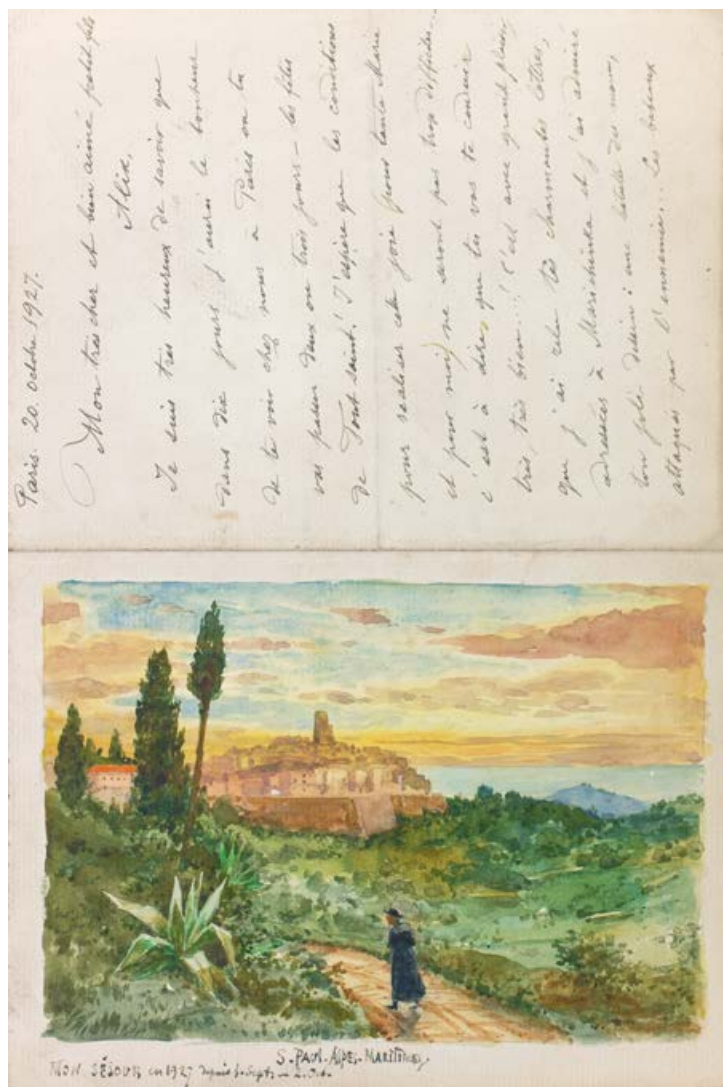 Paris. 20. octobre 1927.
Mon tres cher et bien aimé petit fils
Alix,
Je suis tres heureux de savoir que
dans dix jours j'aurai le bonheur
de te voir chez nous à Paris ou tu
vas passer deux ou trois jours – les fêtes
de Tout Saint! J'espère que les conditions
pour realiser cette joie pour tante Marie
et pour moi, ne seront pas trop difficiles –
c'est à dire, que tu vas te conduire
très, très bien...! C'est avec grand plaisir
que j'ai relu tes charmantes lettres,
adressées à Marichenka et j'ai admiré
ton joli dessin: une bataille des
attaqués par l'ennemie... Les
S-PAUL-ALPES-MARITIMES,
MON SÉJOUR en 1927 depuis Sept – 2. Oct.